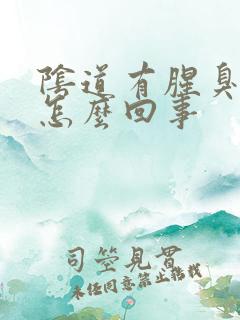 陰道有腥臭
怎麼回事
司箜見霄
未经同意禁止搬载